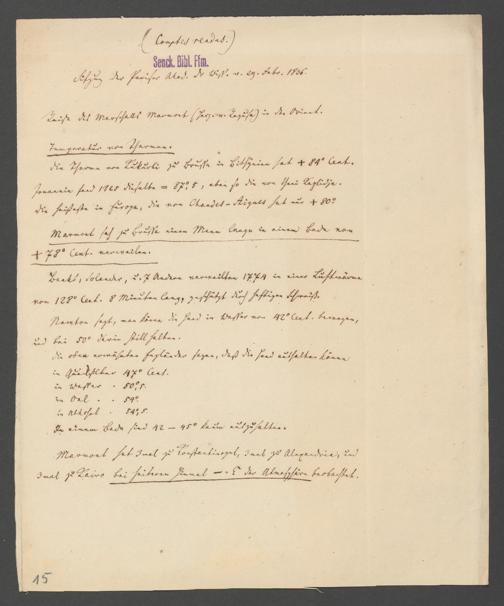 (Comptes rendus.)
Senck. Bibl. Ffm.
Sitzung der Pariser Akad. der Wiss. v. 29. Febr. 1836.
Reise des Marschalls Marmont (Herz. v. Ragusa) in den Orient.
Temperatur von Thermen.
Die Therme von zu Brussa in Bithynien hat + 84° Cent.
fand 1828 dieselbe = 87°,5, ebenso die von
die heißeste in Europa, die von Chaudes-Aigues hat nur + 80°
Marmont sah zu Brussa einen Mann lange in einem Bade von
+ 78° Cent. verweilen.
Banks, Solander, u. 7 Andere verweilten 1774 in einer Luftwärme
von 128° Cent. 8 Minuten lang, geschützt durch heftigen Schweiß.
Newton sagt, man könne die Hand in Wasser von 42° Cent. bewegen,
und bei 50° darin still halten.
die oben erwähnten Engländer sagen, daß die Hand aushalten könne
in Quecksilber 47° Cent.
in Wasser - 50°,5.
in Oel - - 54°.
in Alkohol - 54°,5.
In einem Bade sind 42 – 45° kaum auszuhalten.
Marmont hat 3mal zu Constantinopel, 3mal zu Alexandria, und
3mal zu Kairo bei heiterem Himmel – E der Atmosphäre beobachtet.
15